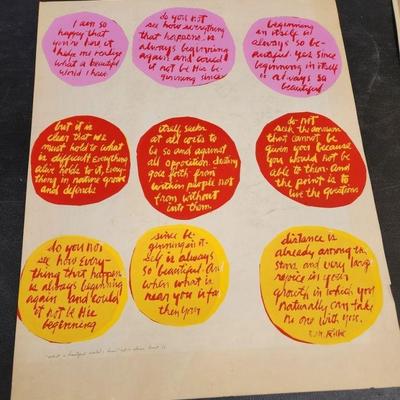 I am so
happy that
you're here it
help me realize
what a beautiful
world I have
do you not
see how everything
that happens is
always beginning
again and could
it not be His be-
ginning since
beginning
in itself is
always so be-
autiful yes since
beginning in itself
is always so
beautiful
but it is
clear that we
must hold to what
is difficult everything
alive holds to it, every-
thing in nature grows
and defends
itself seeks
at all costs to
be so and against
all opposition destiny
goes forth from
within people not
from without
into them.
do not
seek the answers
that cannot be
given you because
you would not be
able to them And
the point is to
live the questions
do you not
see how every-
thing that happens
is always beginning
again and could
it not be His
beginning
since be-
ginning in it-
self is always
so beautiful. And
when what is
near you is far
then your
distance is
already among the
stars and very large
rejoice in your
growth in which you
naturally can take
no one with you.
R.M. Rilke